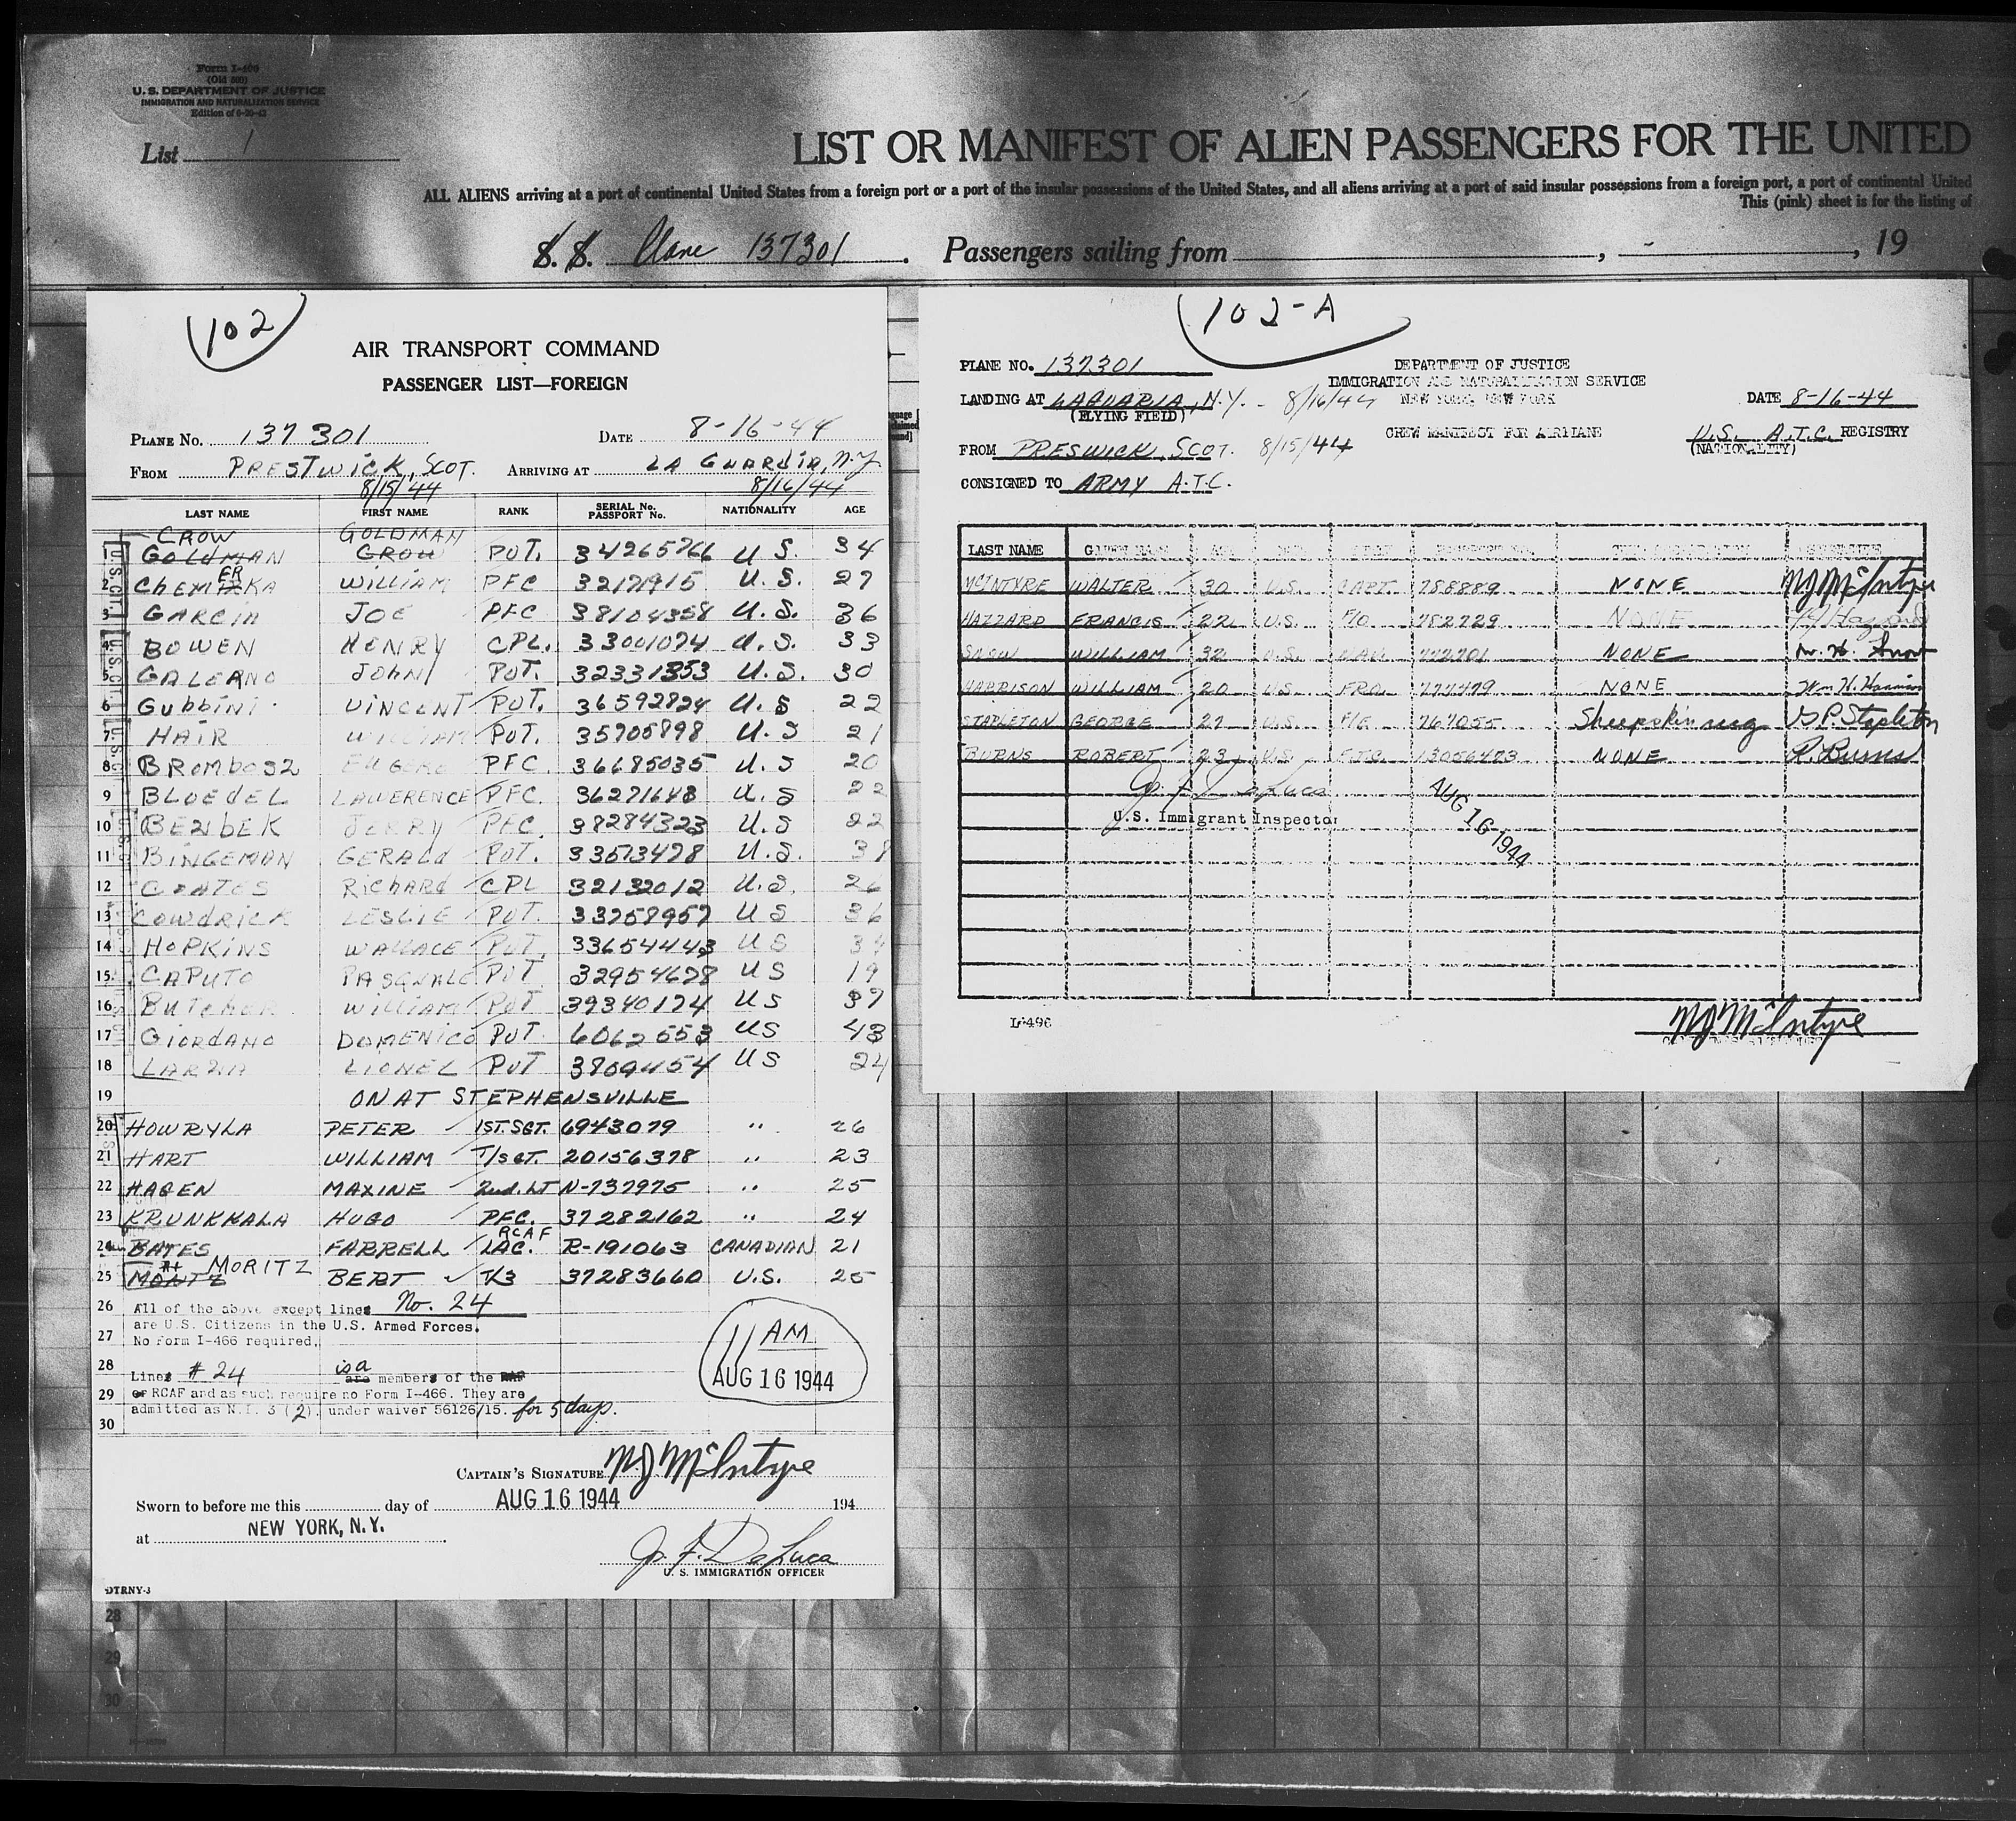 Form I-466
(Old 500)
U. S. DEPARTMENT OF JUSTICE
IMMIGRATION AND NATURALIZATION SERVICE
List 1
LIST OR MANIFEST OF ALIEN PASSENGERS FOR THE UNITED
ALL ALIENS arriving at a port of continental United States from a foreign port or a port of the insular possessions of the United States, and all aliens arriving at a port of said insular possessions from a foreign port, a port of continental United
This (pink) sheet is for the listing of
S. S. Plane 137301 . Passengers sailing from , , 19
102
AIR TRANSPORT COMMAND
PASSENGER LIST—FOREIGN
PLANE NO. 137301 DATE 8-16-44
FROM PRESTWICK, SCOT. ARRIVING AT LA GUARDIA, N.Y.
8/15/44 8/16/44
LAST NAME FIRST NAME RANK SERIAL No. PASSPORT No. NATIONALITY AGE
CROW GOLDMAN
1 GOLDMAN CROW PVT. 34265766 U S. 34
ER
2 CHEMIRKA WILLIAM PFC 32171915 U. S. 27
3 GARCIA JOE PFC 38104358 U. S. 36
4 BOWEN HENRY CPL. 33001074 U. S. 33
5 GALERNO JOHN PVT. 32331353 U. S. 30
6 GUBBINI VINCENT PVT. 36592824 U. S 22
7 HAIR WILLIAM PVT. 35705898 U. S 21
8 BROMBOSZ EUGENE PFC. 36685035 U. S 20
9 BLOEDEL LAWERENCE PFC. 36271648 U. S 22
10 BENBEK JERRY PFC. 38284323 U. S 22
11 BINGEMAN GERALD PVT. 33573478 U. S.
12 RICHARD CPL 32132012 U. S. 26
13 COWDRICK LESLIE PVT. 33258957 U S 36
14 HOPKINS WALLACE PVT. 33654443 U S
15 CAPUTO PASQUALE PVT 32954678 U S 19
16 BUTCHER WILLIAM PVT 39340174 U S 37
17 GIORDANO DOMENICO PVT 6062553 US 43
18 LARZIA LIONEL PVT 38094454 U S 24
19 ON AT STEPHENSVILLE
20 HOWRYLA PETER 1ST. SGT. 6943079 " 26
21 HART WILLIAM T/SGT. 20156378 " 23
22 HAGEN MAXINE 2nd. LT N-737975 " 25
23 KRUNKKALA HUGO PFC. 37282162 " 24
RCAF
24 BATES FARRELL LAC. R-191063 CANADIAN 21
MORITZ
25 MONTZ BERT T/3 37283660 U.S. 25
26 All of the above except lines No. 24
are U.S. Citizens in the U.S. Armed Forces.
27 No Form I-466 required.
28 Lines # 24 is a are members of the RAF
29 or RCAF and as such require no Form I-466. They are
admitted as N.I. 3 (2) under waiver 56126/15. for 5 days.
30
11 AM
AUG 16 1944
CAPTAIN'S SIGNATURE WJ McIntyre
Sworn to before me this day of AUG 16 1944 194
at NEW YORK, N. Y.
Jo. F. DeLuca
U. S. IMMIGRATION OFFICER
DTRNY-3
28
29
30
102-A
PLANE NO. 137301 DEPARTMENT OF JUSTICE
IMMIGRATION AND NATURALIZATION SERVICE
LANDING AT LAGUARIA, N.Y. - 8/16/44 NEW YORK, NEW YORK DATE 8-16-44
(FLYING FIELD)
FROM PRESWICK, SCOT. 8/15/44 CREW MANIFEST FOR AIRPLANE U.S. A.T.C. REGISTRY
(NATIONALITY)
CONSIGNED TO ARMY A.T.C.
LAST NAME GIVEN NAME
MCINTYRE WALTER 30 U.S. CAPT. 788889 NONE WJ McIntyre
HAZZARD FRANCIS 22 U.S. F/O 782729 NONE
SNOW WILLIAM 32 U.S. NAV. 777701 NONE W. H. Snow
HARRISON WILLIAM 20 U.S. F.R.O. 777479 NONE Wm H. Harrison
STAPLETON GEORGE 27 U.S. F/E 767055 Sheepskin rug G.P. Stapleton
BURNS ROBERT 23 U.S. F.T.C. 13056473 NONE R. Burns
Jo. F. DeLuca
U.S. Immigrant Inspector
AUG 16 1944
L-496
WJ McIntyre